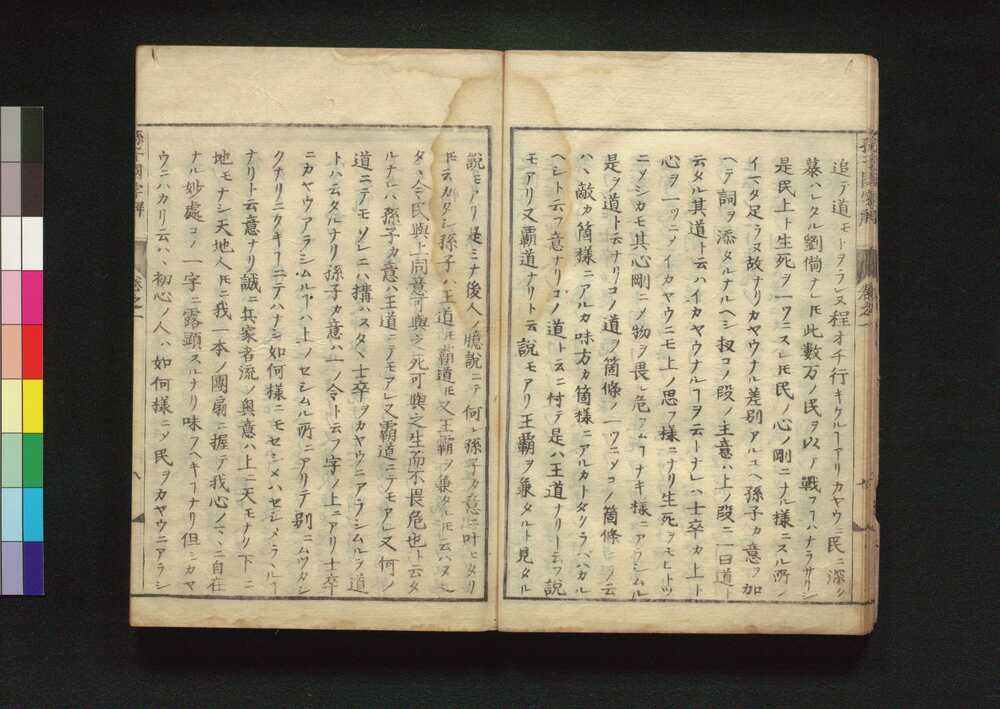 追テ道モトヲラヌ程オチ行キケルヿアリカヤウニ民ニ深ク
慕ハレタル劉備ナレ𪜈此數万ノ民ヲ以テ戰フヿハナラサリシ
是民上ト生死ヲ一ツニスレ𪜈民ノ心ノ剛ニナル樣ニスル所ノ
イマタ足ラヌ故ナリカヤウナル差別アルユヘ孫子カ意ヲ加
ヘテ詞ヲ添タルナルヘシ扨コノ段ノ主意ハ上ノ段ニ一曰道ト
云タル其道ト云ハイカヤウナルヿヲ云トナレハ士卒カ上ト
心ヲ一ツニメイカヤウニモ上ノ思フ樣ニナリ生死ヲモヒトツ
ニメシカモ其心剛ニメ物ヲ畏レ危フムヿナキ樣ニアラシムル
是ヲ道ト云ナリコノ道ヲ箇條ノ一ツニメコノ箇條ニ云
ハヽ敵カ箇樣ニアルカ味方カ箇樣ニアルカトタクラバカル
ヘシト云フ意ナリコノ道ト云ニ付テ是ハ王道ナリト云フ說
モアリ又霸道ナリト云說モアリ王霸ヲ兼タルト見タル
說モアリ是ミナ後人ノ臆說ニテ何レ孫子カ意ニ叶ヒツタリ
𪜈云カタシ孫子ハ王道𪜈霸道𪜈又王霸ヲ兼タル𪜈云ハヌ也
タヽ令民與上同意可與之死可與之生而不畏危也ト云タ
ルナレハ孫子カ意ハ王道ニテモアレ又霸道ニテモアレ又何ノ
道ニテモソレニハ搆ハスタヽ士卒ヲカヤウニアラシムルヲ道
トハ云タルナリ孫子カ意ハ一ノ令ト云フ字ノ上ニアリ士卒
ニカヤウアラシムルヿハ上ノセシムル所ニアリテ別ニムツカシ
クナリニクキヿニテハナシ如何樣ニモセシメハセシメラルヽヿ
ナリト云意ナリ誠ニ兵家者流ノ奥意ハ上ニ天モナク下ニ
地モナシ天地人𪜈ニ我一本ノ團扇ニ握テ我心ノマヽニ自在
ナル妙處コノ一字ニ露顕スルナリ味フヘキヿナリ但シカヤ
ウニハカリ云ハヽ初心ノ人ハ如何樣ニメ民ヲカヤウニアラシ
孫子國字解
卷之一
八